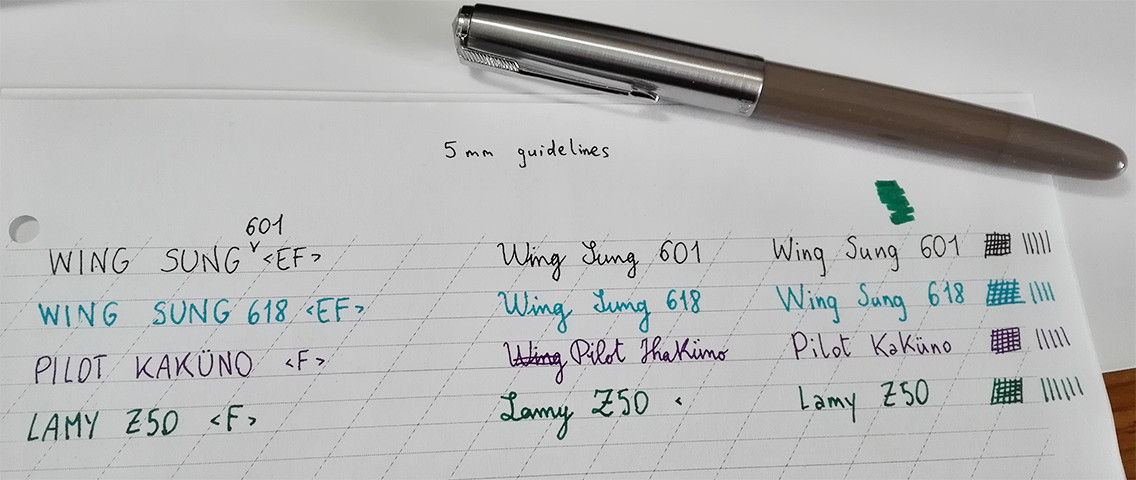 5 mm guidelines
601
WING SUNG ˅ <EF> Wing Sung 601 Wing Sung 601
WING SUNG 618 <EF> Wing Sung 618 Wing Sung 618
PILOT KAKÜNO <F> Wing Pilot Khaküno Pilot Kaküno
LAMY Z50 <F> Lamy Z50 < Lamy Z50